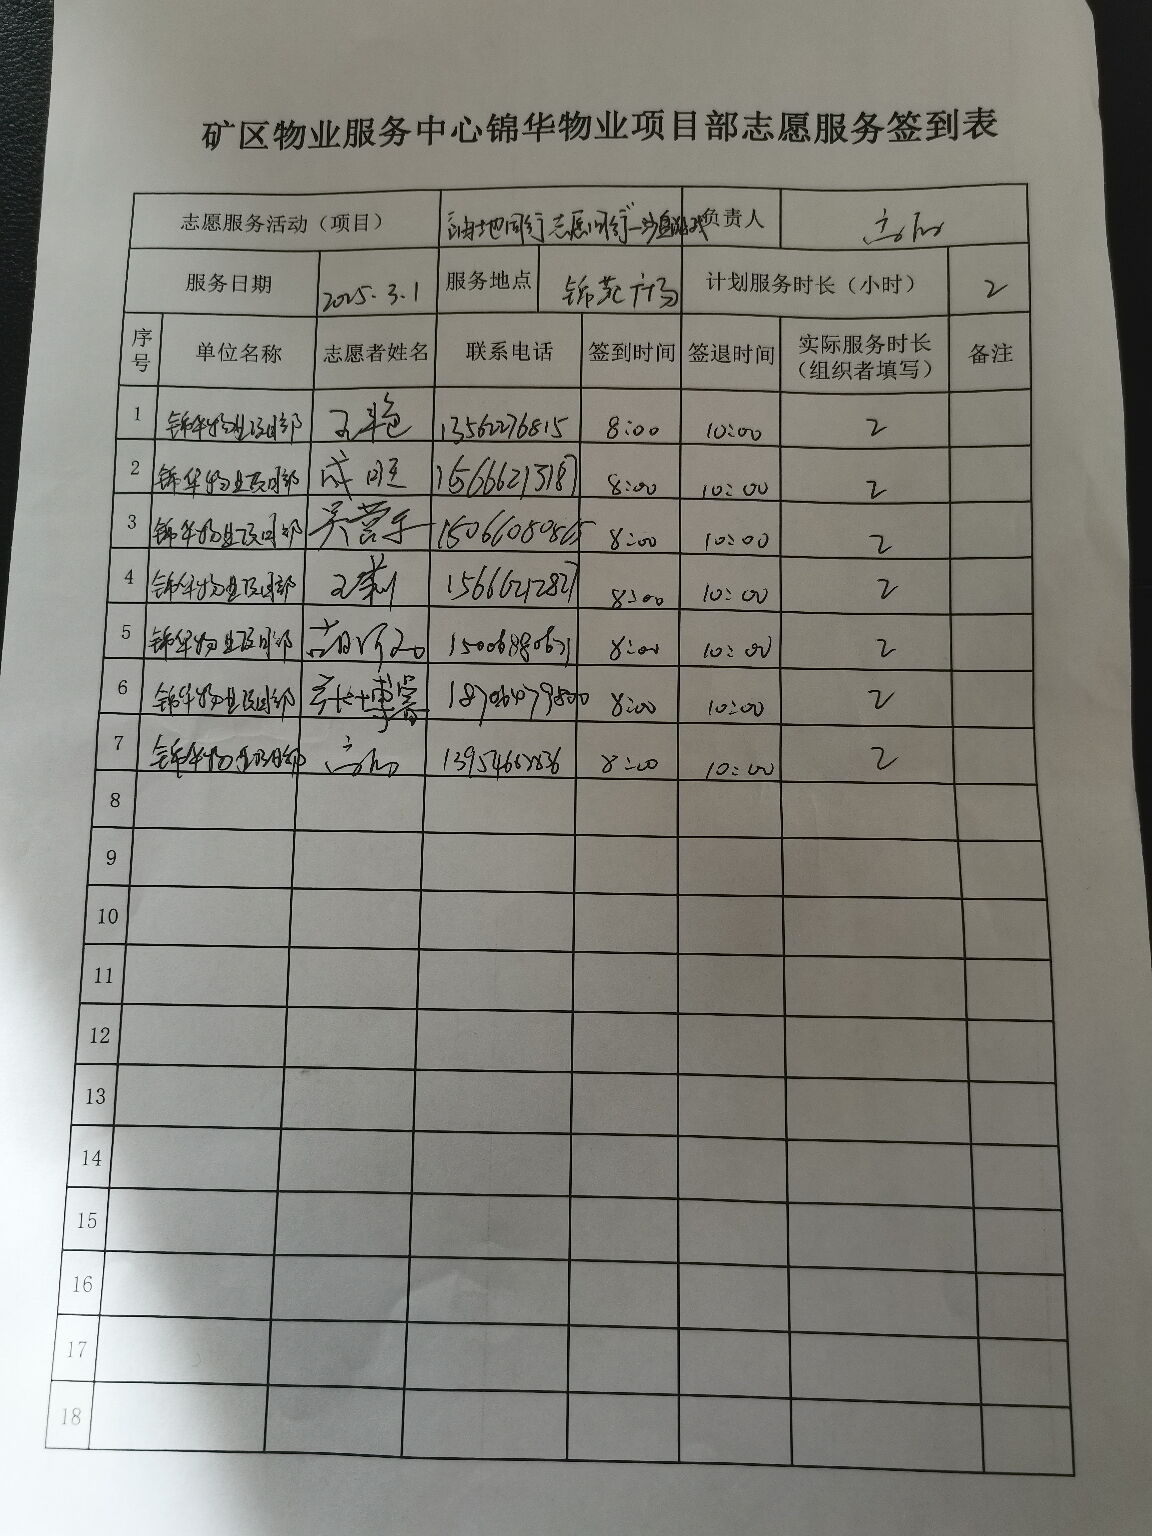 矿区物业服务中心锦华物业项目部志愿服务签到表
志愿服务活动（项目） 油地同行 志愿同行 负责人
服务日期 2025.3.1 服务地点 锦苑广场 计划服务时长（小时） 2
序号 单位名称 志愿者姓名 联系电话 签到时间 签退时间 实际服务时长（组织者填写） 备注
1 锦华物业项目部 王艳 13562276815 8:00 10:00 2
2 锦华物业项目部 成旺 15666213187 8:00 10:00 2
3 锦华物业项目部 吴营乐 8:00 10:00 2
4 锦华物业项目部 15666212827 8:00 10:00 2
5 锦华物业项目部 15006880671 8:00 10:00 2
6 锦华物业项目部 8:00 10:00 2
7 锦华物业项目部 8:00 10:00 2
8
9
10
11
12
13
14
15
16
17
18